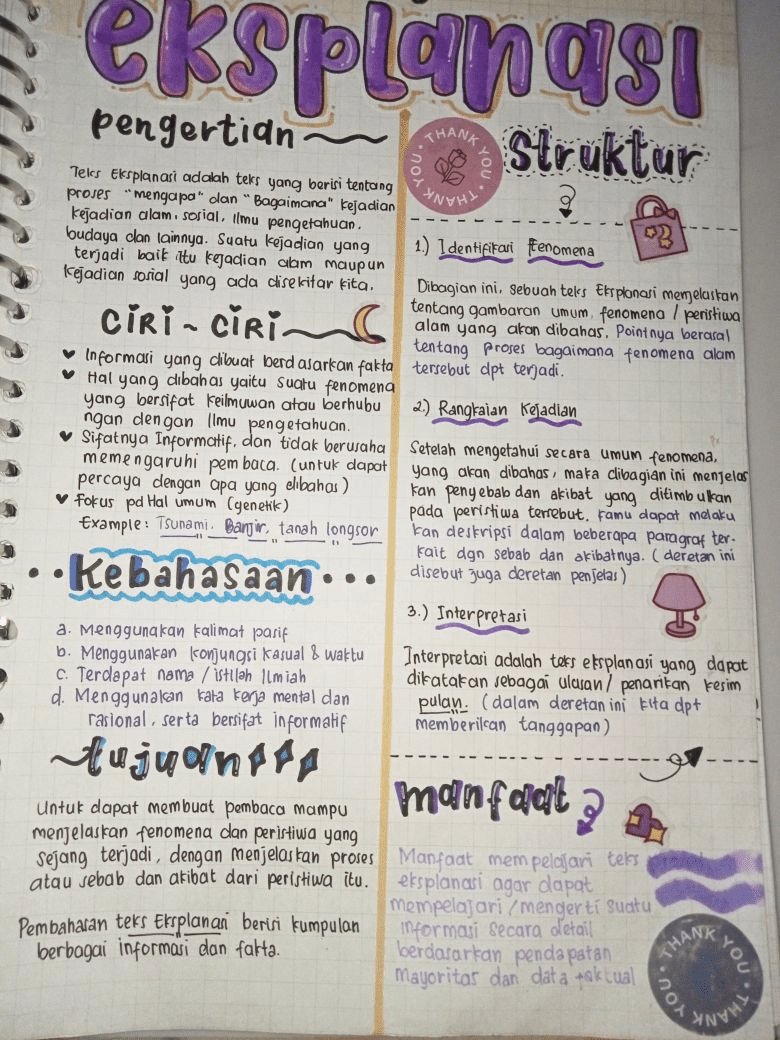 eksplanasi
pengertian
Teks Eksplanasi adalah teks yang berisi tentang
proses "mengapa" dan "Bagaimana" kejadian
kejadian alam, sosial, Ilmu pengetahuan,
budaya dan lainnya. Suatu kejadian yang
terjadi baik itu kejadian alam maupun
kejadian sosial yang ada disekitar kita.
CIRI ~ CIRI
Informasi yang dibuat berdasarkan fakta
Hal yang dibahas yaitu suatu fenomena
yang bersifat keilmuwan atau berhubu
ngan dengan Ilmu pengetahuan.
Sifatnya Informatif, dan tidak berusaha
memengaruhi pembaca. (untuk dapat
percaya dengan apa yang dibahas)
Fokus pd Hal umum (genetik)
Example: Tsunami, Banjir, tanah longsor
Kebahasaan
a. Menggunakan kalimat pasif
b. Menggunakan konjungsi kasual & waktu
c. Terdapat nama / istilah Ilmiah
d. Menggunakan kata kerja mental dan
rasional, serta bersifat informatif
tujuan
Untuk dapat membuat pembaca mampu
menjelaskan fenomena dan peristiwa yang
sejang terjadi, dengan menjelaskan proses
atau sebab dan akibat dari peristiwa itu.
Pembahasan teks Eksplanasi berisi kumpulan
berbagai informasi dan fakta.
THANK YOU • THANK YOU •
Struktur
1.) Identifikasi Fenomena
Dibagian ini, sebuah teks Eksplanasi menjelaskan
tentang gambaran umum, fenomena / peristiwa
alam yang akan dibahas. Pointnya berasal
tentang Proses bagaimana fenomena alam
tersebut dpt terjadi.
2.) Rangkaian Kejadian
Setelah mengetahui secara umum fenomena,
yang akan dibahas, maka dibagian ini menjelas
kan penyebab dan akibat yang ditimbulkan
pada peristiwa tersebut. kamu dapat melaku
kan deskripsi dalam beberapa paragraf ter-
kait dgn sebab dan akibatnya. (deretan ini
disebut juga deretan penjelas)
3.) Interpretasi
Interpretasi adalah teks eksplanasi yang dapat
dikatakan sebagai ulasan / penarikan kesim
pulan. (dalam deretan ini kita dpt
memberikan tanggapan)
manfaat
Manfaat mempelajari teks
eksplanasi agar dapat
mempelajari / mengerti suatu
informasi secara detail
berdasarkan pendapatan
mayoritas dan data faktual
THANK YOU • THANK YOU •